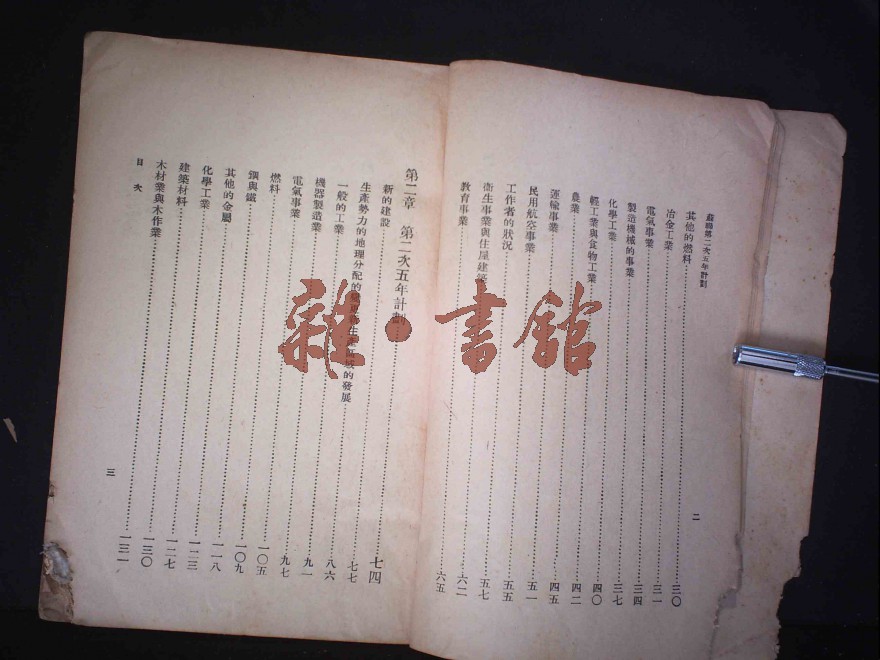 蘇聯第二次五年計劃
其他的燃料……三〇
冶金工業……三一
電氣事業……三四
製造機械的事業……三七
化學工業……四〇
輕工業與食物工業……四二
農業……四五
運輸事業……五一
民用航空事業……五五
工作者的狀況……五七
衛生事業與住屋建築……六二
教育事業……六五
二
第二章　第二次五年計劃……七四
新的建設……七七
生產勢力的地理分配的生產區域的發展……八六
一般的工業……九一
機器製造業……九七
電氣事業……一〇五
燃料……一〇九
鋼與鐵……一一八
其他的金屬……一二三
化學工業……一二七
建築材料……一三〇
木材業與木作業……一三一
目次
三
雜·書館